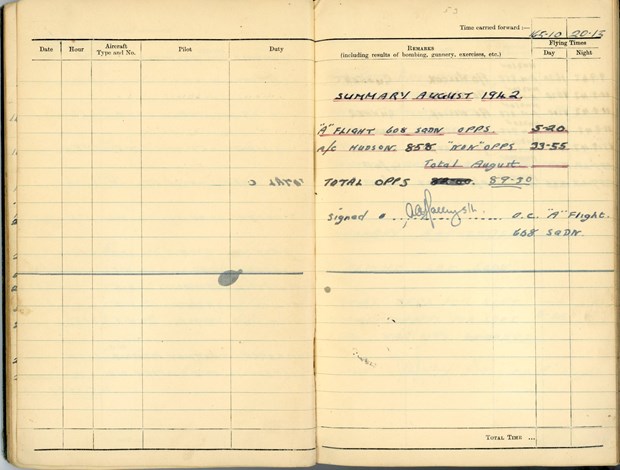 Time carried forward :—
165-10 20-15
Date Hour Aircraft Type and No. Pilot Duty
Remarks
(including results of bombing, gunnery, exercises, etc.)
Flying Times
Day Night
SUMMARY AUGUST 1942
"A" FLIGHT 608 SQDN OPPS. 5-20
A/C HUDSON. 858 "NON" OPPS 33-55
Total August
TOTAL OPPS 89-30
Signed O.C. "A" Flight.
608 SQDN.
Total Time ...